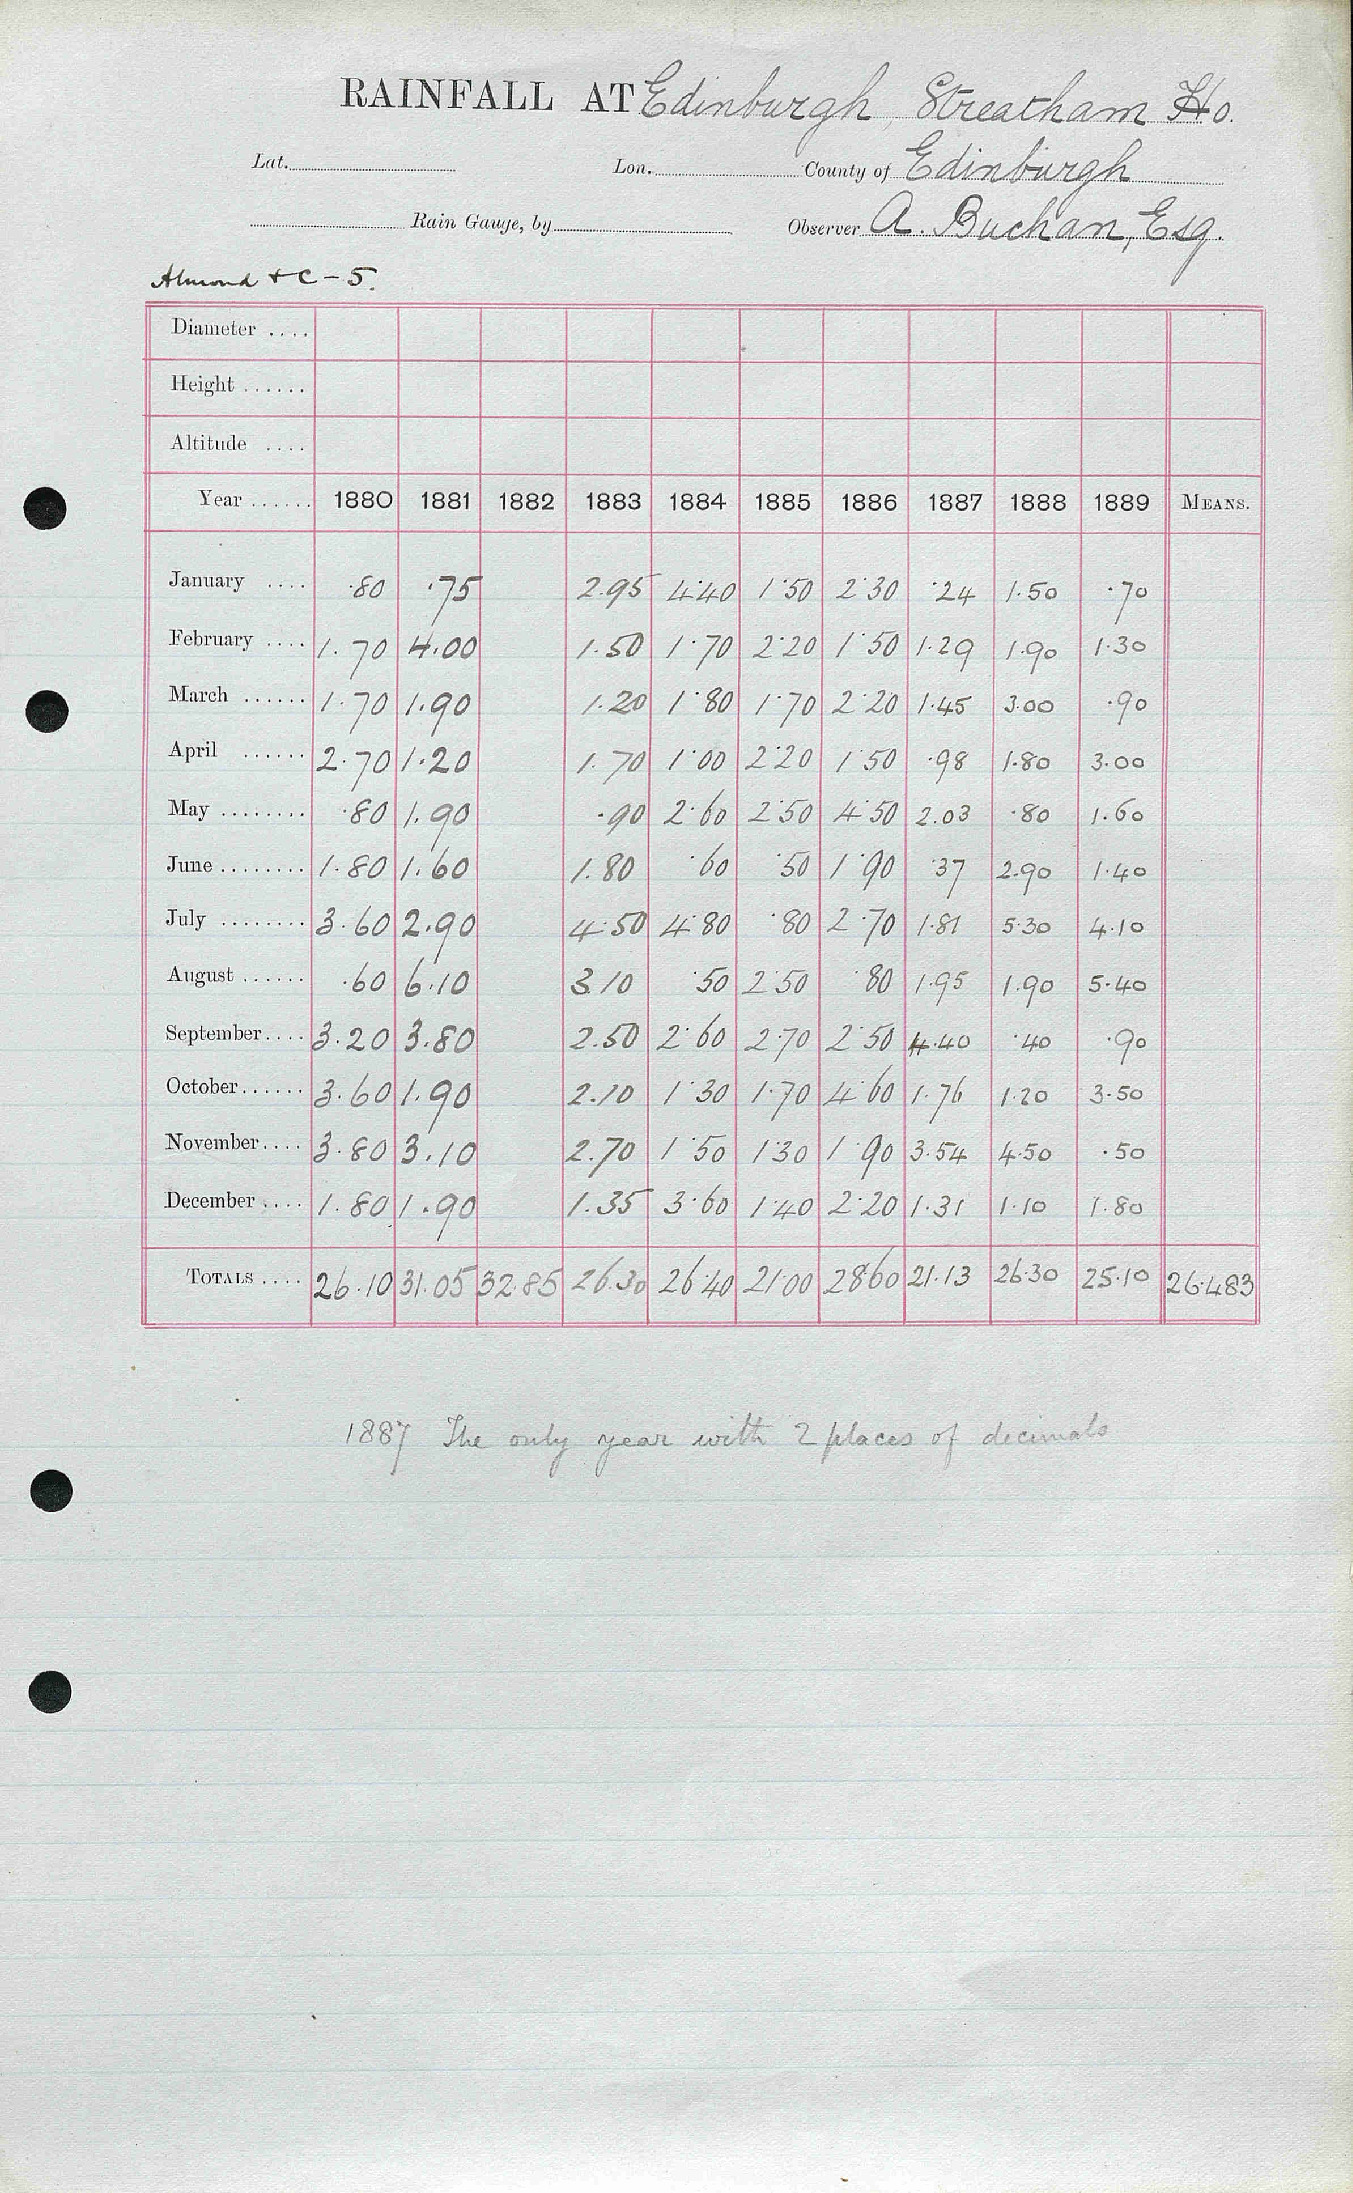 RAINFALL AT Edinburgh, Streatham Ho.
Lat. Lon. County of Edinburgh
Rain Gauge, by Observer A. Buchan, Esq.
Almond & C - 5.
Diameter ....
Height ......
Altitude ....
Year ...... 1880 1881 1882 1883 1884 1885 1886 1887 1888 1889 MEANS.
January .... ·80 ·75 2.95 4·40 1·50 2·30 ·24 1·50 ·70
February .... 1·70 4.00 1·50 1·70 2·20 1·50 1·29 1·90 1·30
March ...... 1·70 1.90 1·20 1·80 1·70 2·20 1·45 3·00 ·90
April ...... 2·70 1·20 1·70 1·00 2·20 1·50 ·98 1·80 3·00
May ........ ·80 1.90 ·90 2·60 2·50 4·50 2.03 ·80 1·60
June ........ 1·80 1.60 1.80 ·60 ·50 1·90 ·37 2·90 1·40
July ........ 3·60 2.90 4·50 4·80 ·80 2·70 1·81 5·30 4·10
August ...... ·60 6·10 3.10 ·50 2·50 ·80 1·95 1·90 5·40
September .... 3·20 3.80 2.50 2·60 2·70 2·50 4·40 ·40 ·90
October ...... 3·60 1.90 2.10 1·30 1·70 4·60 1·76 1·20 3·50
November .... 3·80 3.10 2.70 1·50 1·30 1·90 3·54 4·50 ·50
December .... 1·80 1.90 1.35 3·60 1·40 2·20 1·31 1·10 1·80
TOTALS .... 26·10 31.05 32.85 26.30 26·40 21·00 28·60 21·13 26·30 25·10 26·483
1887 The only year with 2 places of decimals